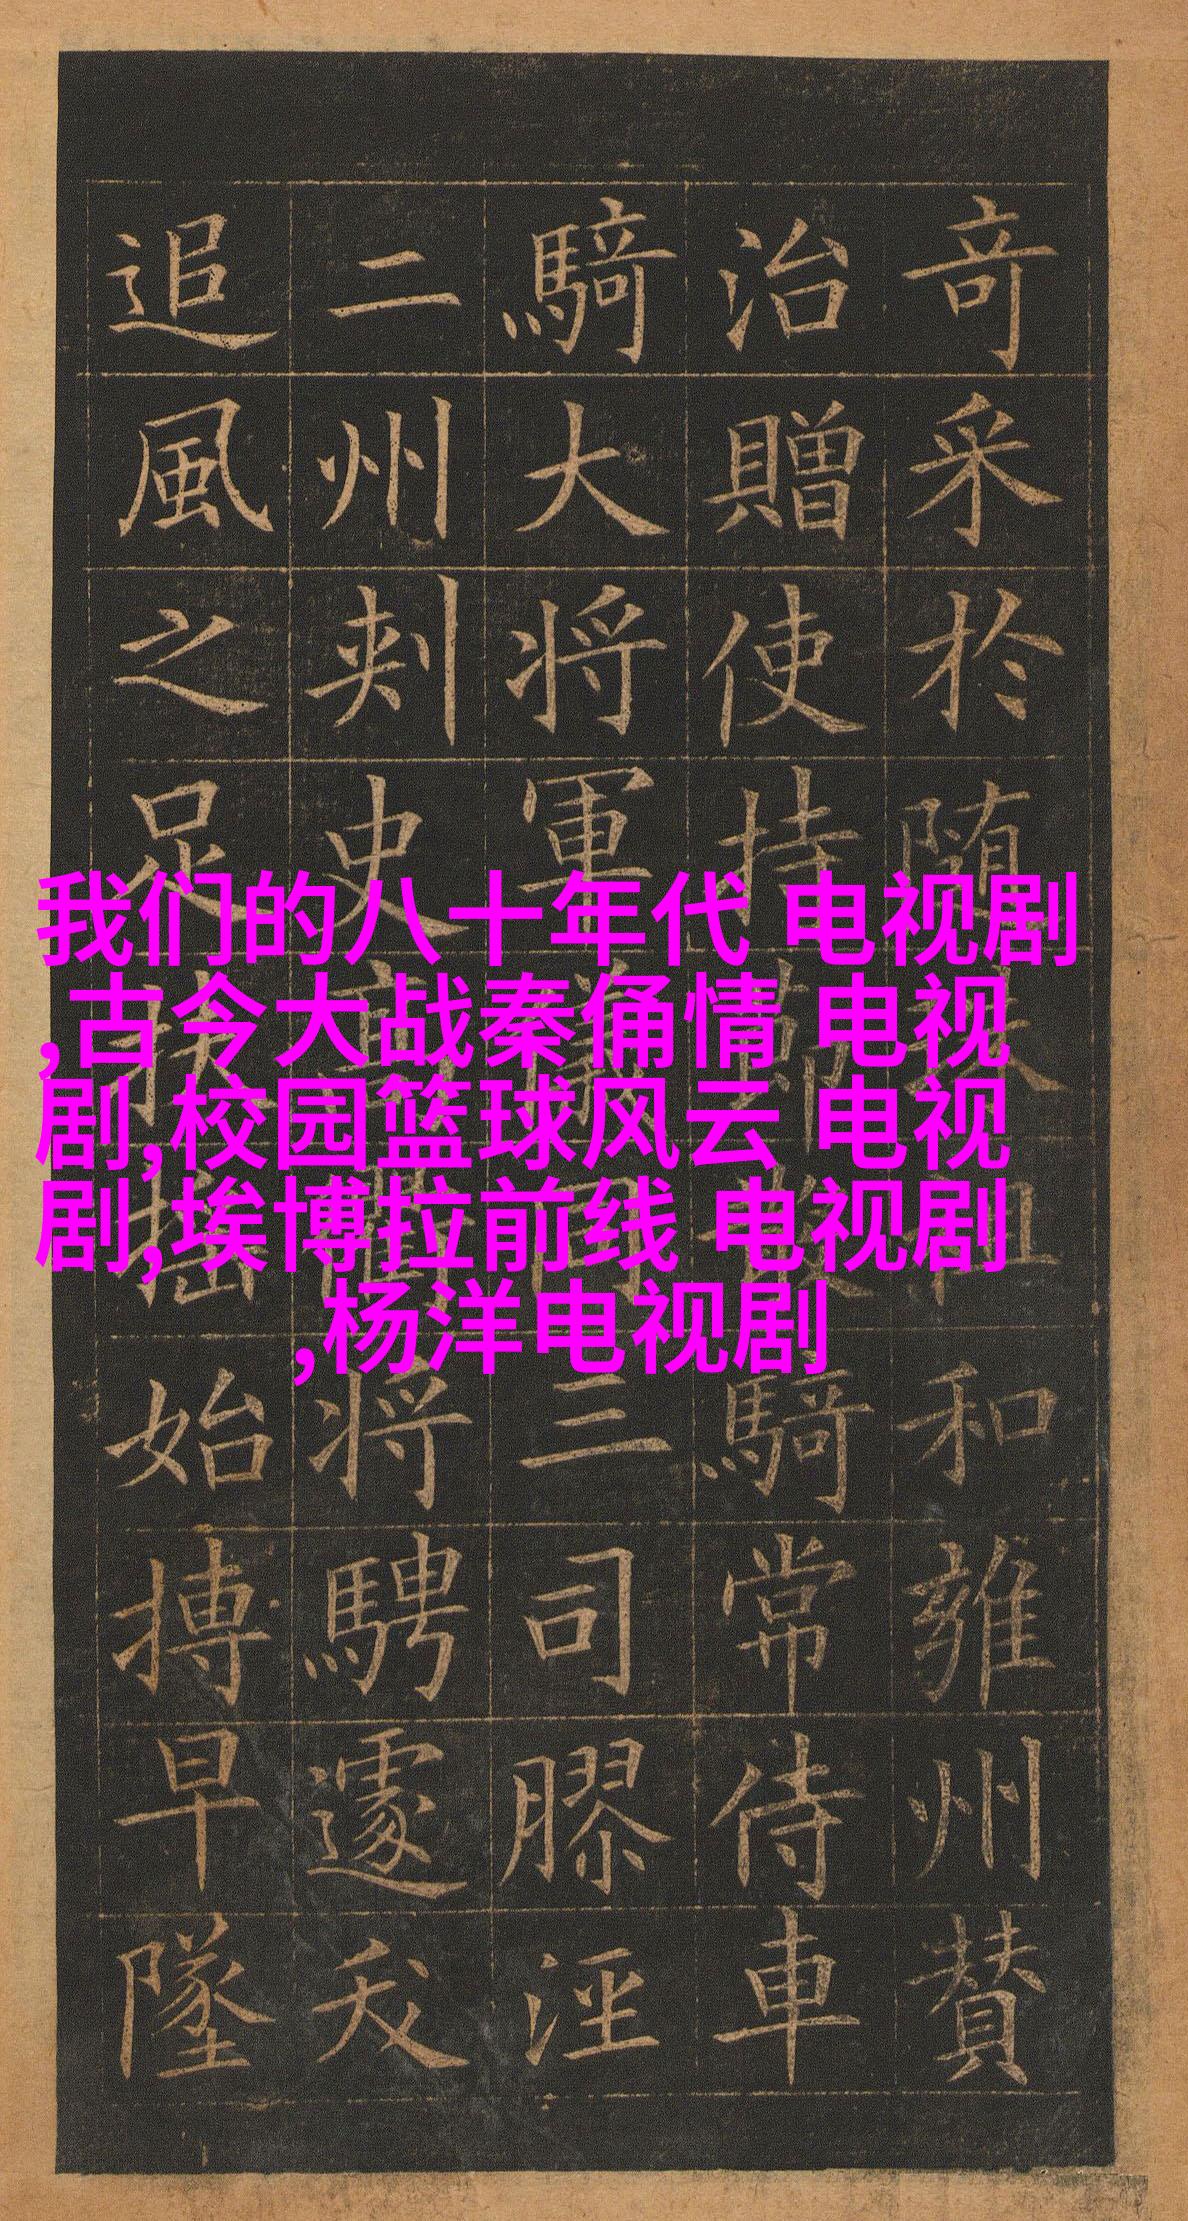 我们的八十年代 电视剧
,古今大战秦俑情 电视
剧,校园篮球风云 电视
剧,埃博拉前线 电视剧
,杨洋电视剧
奇采於随和雍州贊
治贈使持節散騎常侍車
騎大将軍儀同三司膠涇
二州刾史高将騁遽夭
追風之足扶搖始搏早墜